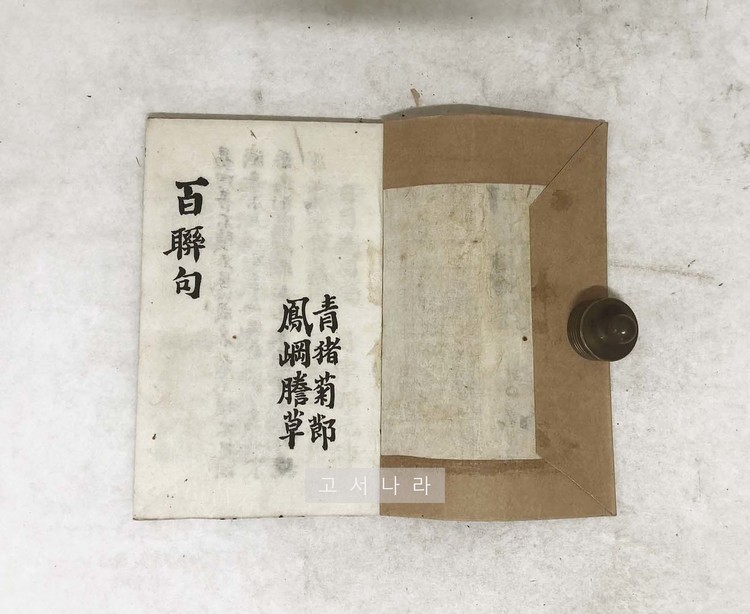 青猪菊莭
鳳崗謄草
百聯句
고서나라